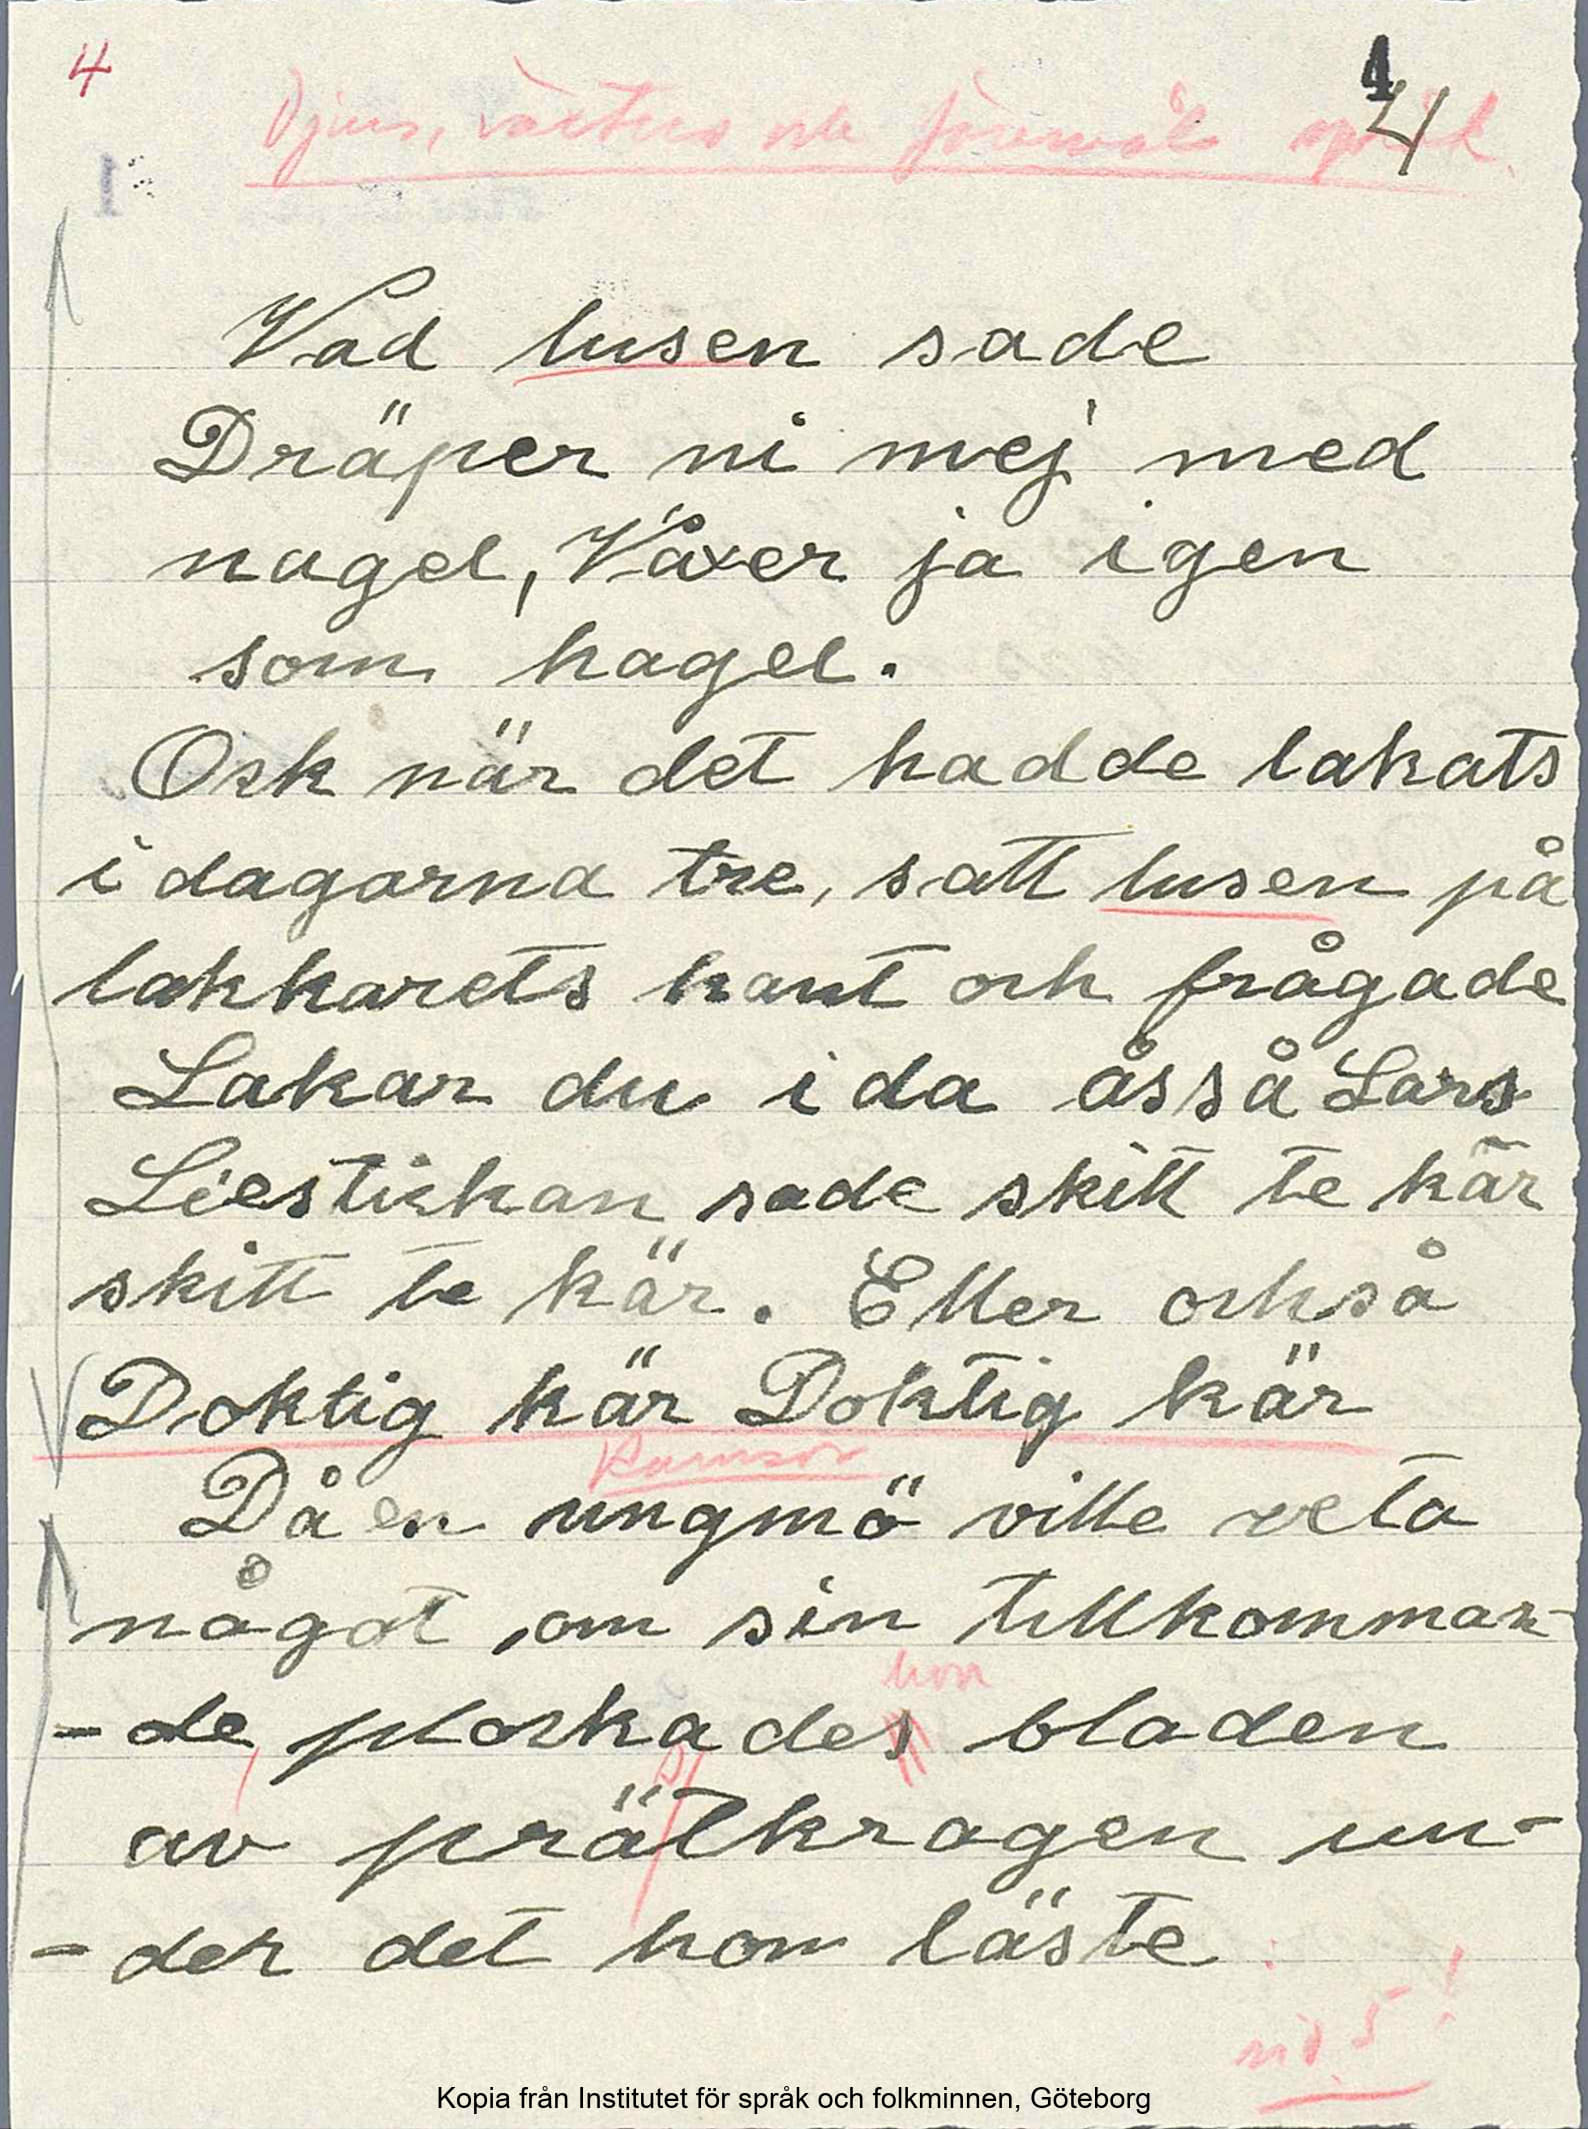 4
4
4
Djurs, växters och föremåls språk.
Vad lusen sade
Dräper ni mej med
nagel, Växer ja igen
som hagel.
Ock när det hadde lakats
i dagarna tre, satt lusen på
lakkarets kant och frågade
Lakar du i da åsså Lars
Liestickan sade skitt te kär
skitt te kär. Eller också
Doktig kär Doktig kär
Ramsor
Då en ungmö ville veta
något om sin tillkomman-
hon
-de, plockades bladen
av prätkragen un-
-der det hon läste:
sid 5!
Kopia från Institutet för språk och folkminnen, Göteborg